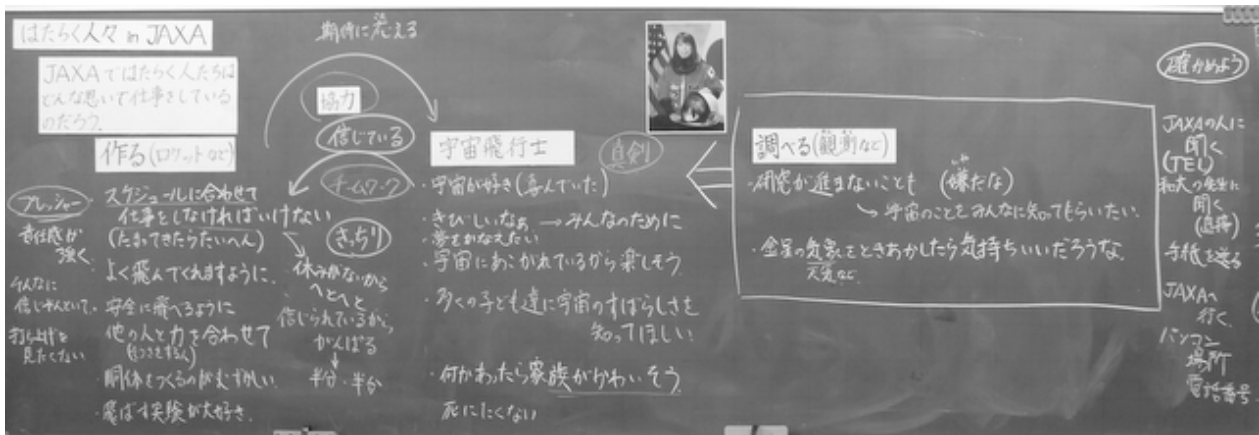 はたらく人々 in JAXA
JAXAではたらく人たちは
どんな思いで仕事をしている
のだろう。
作る(ロケットなど)
プレッシャー
責任感が
強く
スケジュールに合わせて
仕事をしなければいけない
(たまってきたらたいへん)
・よく飛んでくれますように。
・安全に飛べるように
他の人と力を合わせて
・胴体をつくるのがむずかしい
・飛ばす実験が大好き.
打ち上げを
見たくない
期待に応える
協力
信じている
チームワーク
きっちり
休みがないから
へとへと
信じられているから,
がんばる
半分・半分
宇宙飛行士
真剣
・宇宙が好き(喜んでいた)
・きびしいなぁ → みんなのために
・夢をかなえたい
・宇宙にあこがれているから楽しそう
・多くの子ども達に宇宙のすばらしさを
知ってほしい
・何かあったら家族がかわいそう
死にたくない
調べる(観測など)
・研究が進まないことも (嫌だな)
宇宙のことをみんなに知ってもらいたい.
・金星の気象をときあかしたら気持ちいいだろうな.
天気など
確かめよう
JAXAの人に
聞く
(TEL)
和大の先生に
聞く
(直接)
手紙を送る
JAXAへ
行く.
パソコン
場所
電話番号